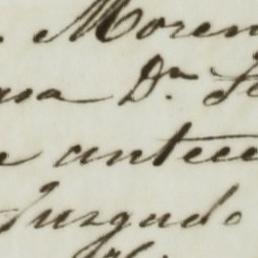 Moren
asa Dn Fe
antece
Juzgado